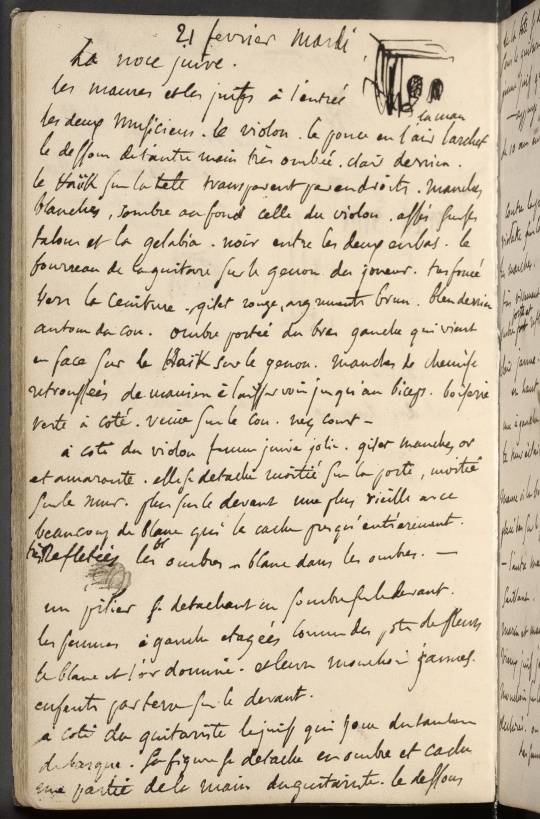 21 fevrier mardi
La noce juive.
les maures et les juifs à l'entrée
les deux musiciens. le violon. le pouce en l'air l'archet
la main
le dessous de l'autre main très ombrée. clair derrière.
le Haïk sur la tete transparent par endroits. manches
blanches, sombre au fond celle du violon. assis sur ses
talons et la gelabia. noir entre les deux en bas. le
fourreau de la guitare sur le genou du joueur. tres foncé
vers la ceinture. gilet rouge, agréments brun. bleu derriere
autour du cou. ombre portée du bras gauche qui vient
en face sur le Haïk sur le genou. manches de chemise
retroussées de maniere à laisser voir jusqu'au biceps. boiserie
verte à coté. verrue sur le cou. nez court –
à coté du violon femme juive jolie. gilet manches, or
et amarante. elle se detache moitié sur la porte, moitié
sur le mur. plus sur le devant une plus vieille avec
beaucoup de blanc qui la cache presqu'entierement.
très Refletées les ombres – blanc dans les ombres. –
un pilier se detachant en sombre sur le devant.
les femmes à gauche etagées comme des pots de fleurs
le blanc et l'or domine. et leurs mouchoirs jaunes.
enfants par terre sur le devant.
a coté du guitariste le juif qui joue du tambour
de basque. sa figure se detache en ombre et cache
une partie de la main du guitariste. le dessous